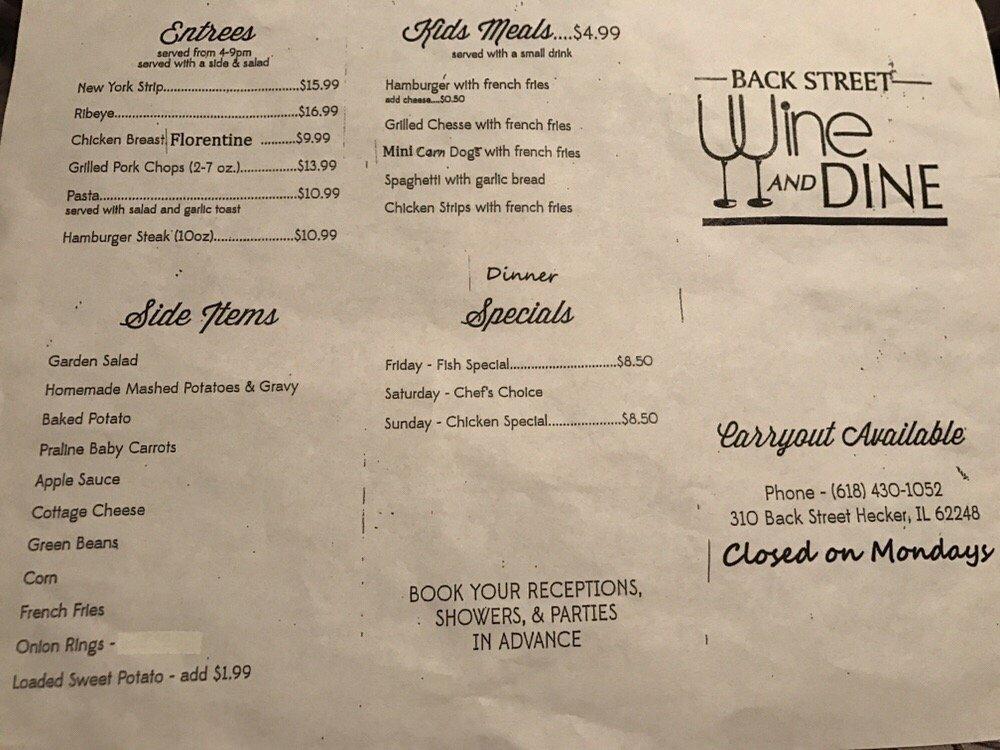 Entrees
served from 4-9pm
served with a side & salad
New York Strip..............................$15.99
Ribeye........................................$16.99
Chicken Breast Florentine .........$9.99
Grilled Pork Chops (2-7 oz.)...............$13.99
Pasta..........................................$10.99
served with salad and garlic toast
Hamburger Steak (10oz)......................$10.99
Side Items
Garden Salad
Homemade Mashed Potatoes & Gravy
Baked Potato
Praline Baby Carrots
Apple Sauce
Cottage Cheese
Green Beans
Corn
French Fries
Onion Rings -
Loaded Sweet Potato - add $1.99
Kids Meals....$4.99
served with a small drink
Hamburger with french fries
add cheese....$0.50
Grilled Chesse with french fries
Mini Corn Dogs with french fries
Spaghetti with garlic bread
Chicken Strips with french fries
Dinner
Specials
Friday - Fish Special.............................$8.50
Saturday - Chef's Choice
Sunday - Chicken Special....................$8.50
BOOK YOUR RECEPTIONS,
SHOWERS, & PARTIES
IN ADVANCE
BACK STREET
Wine
AND DINE
Carryout Available
Phone - (618) 430-1052
310 Back Street Hecker, IL 62248
Closed on Mondays